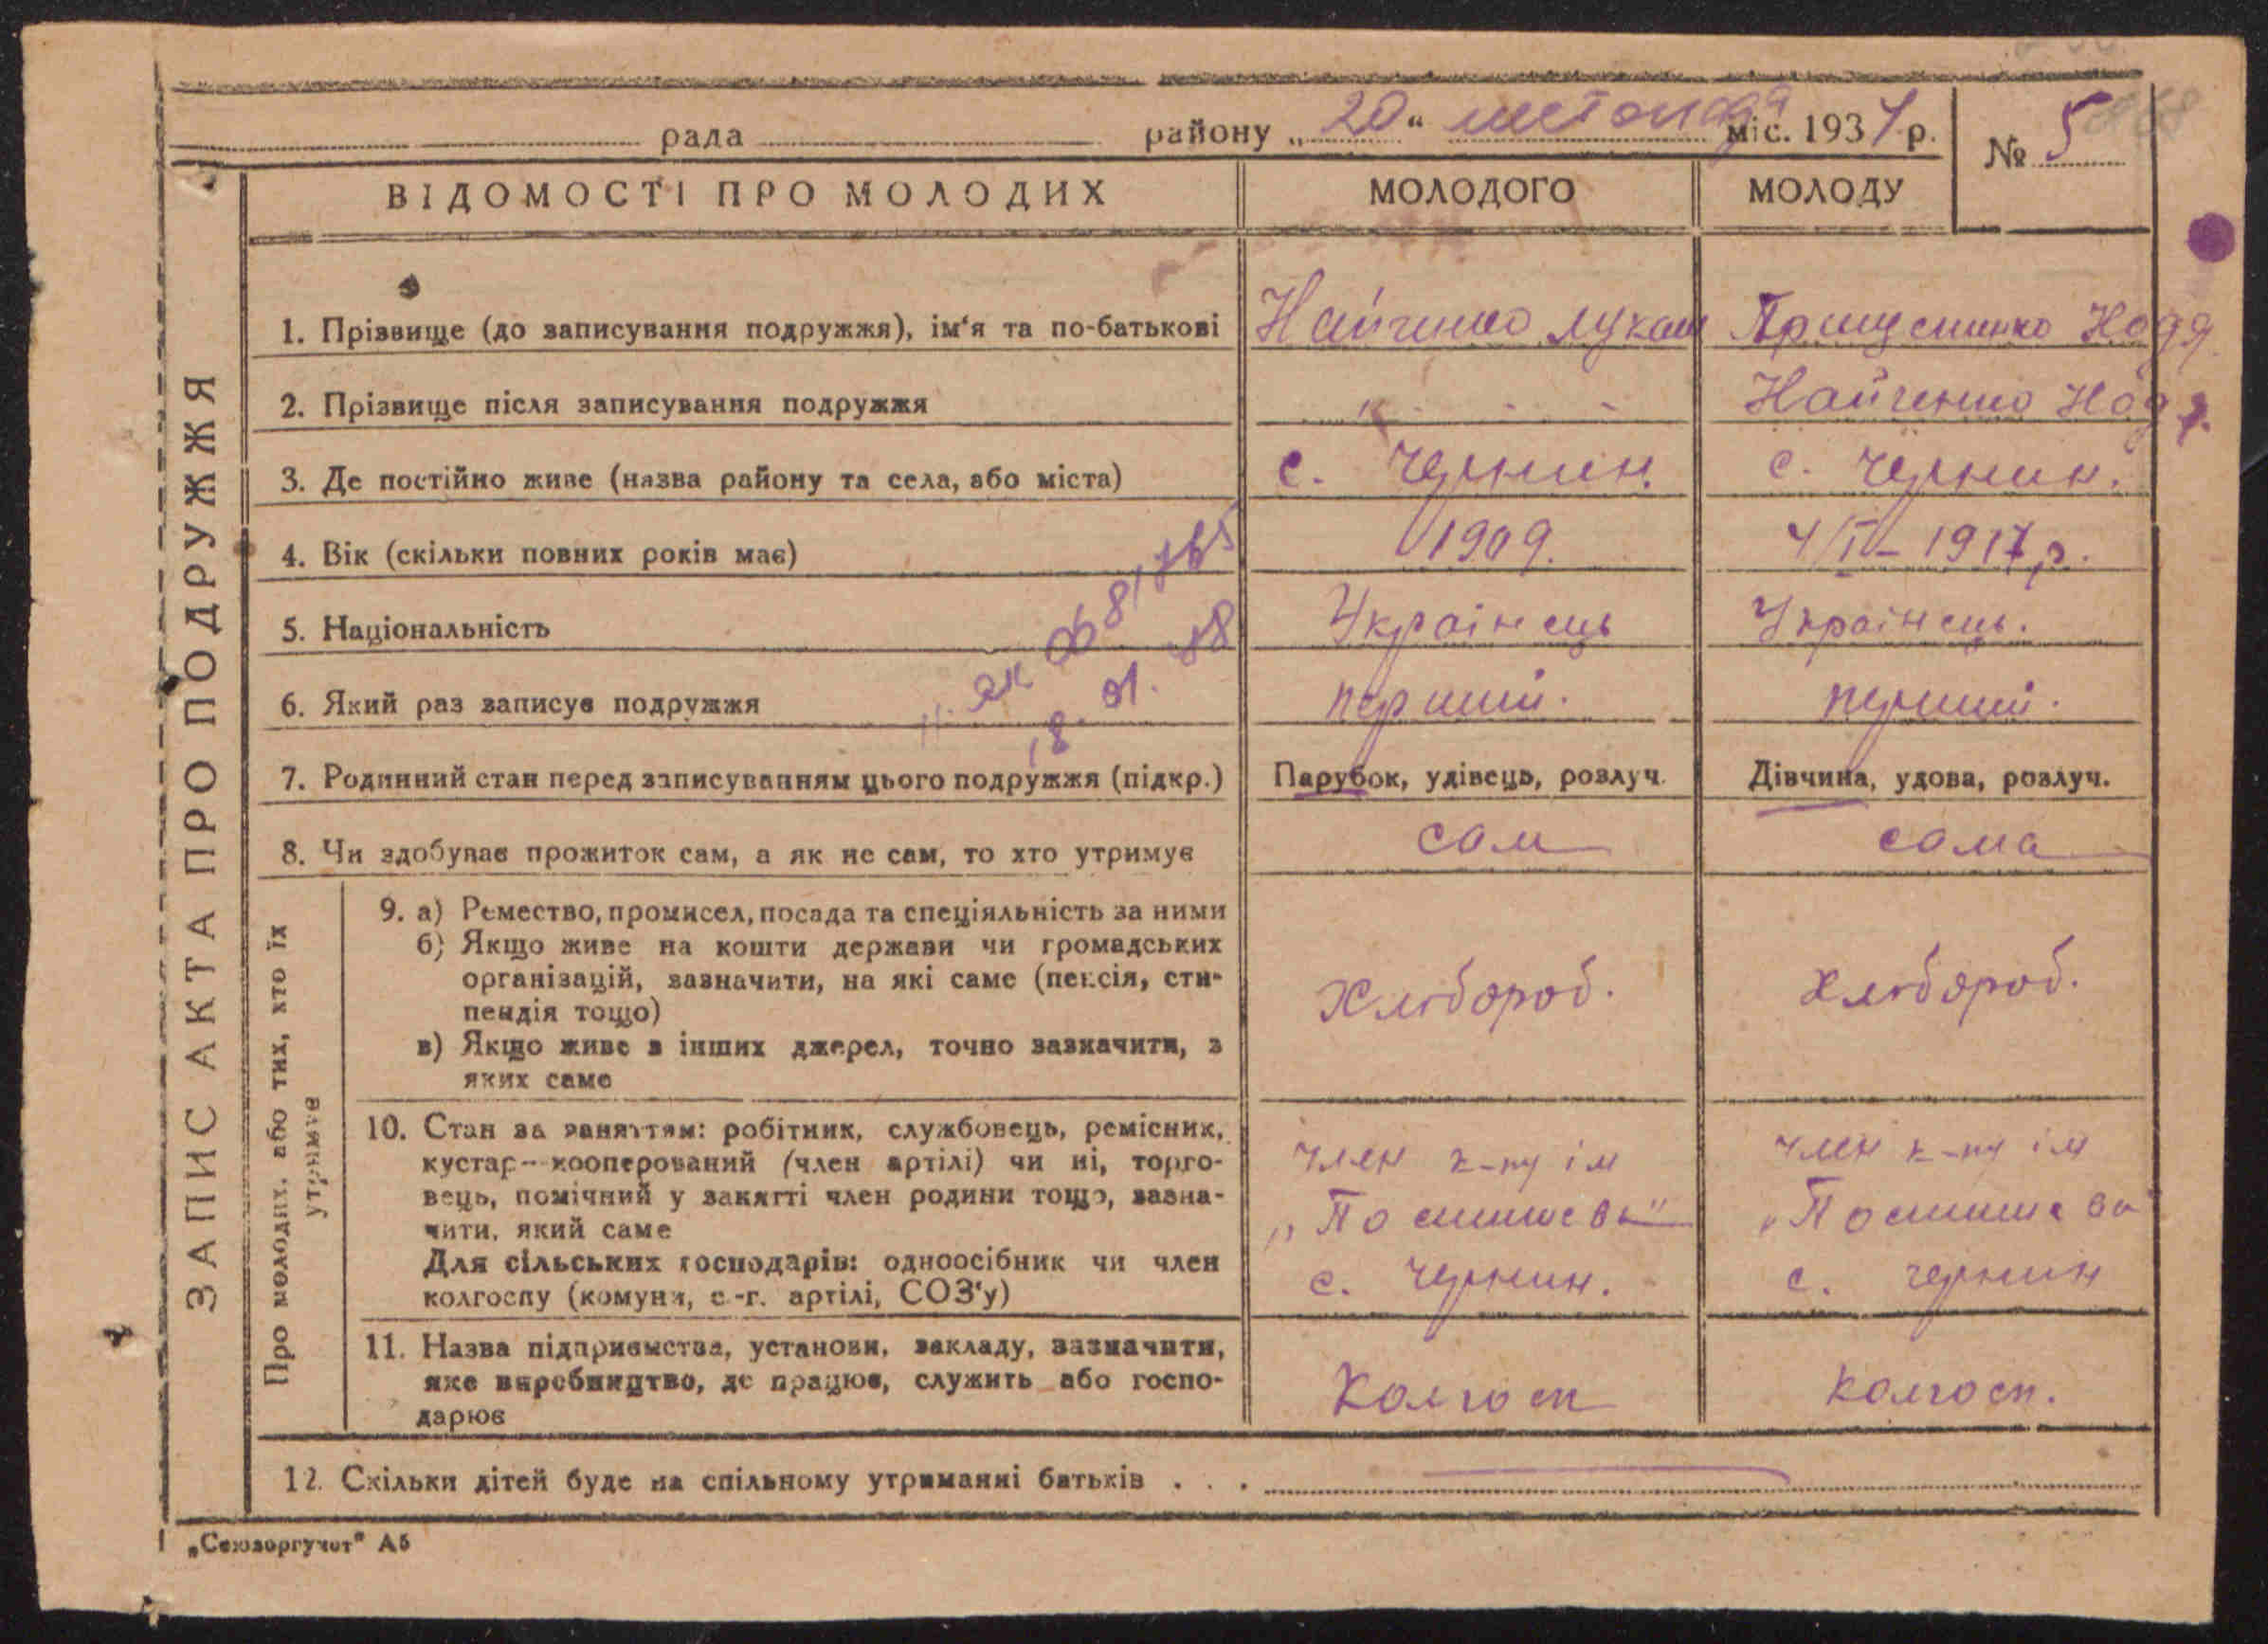 рада района „20“ листопада міс. 1934 р.
№ 5
ВІДОМОСТІ ПРО МОЛОДИХ МОЛОДОГО МОЛОДУ
1. Прізвище (до записування подружжя), ім‘я та по-батькові Найченко Лукаш Прищепенко Надя
2. Прізвище після записування подружжя Найченко Надя
3. Де постійно живе (назва району та села, або міста) с. Чернин. с. Чернин.
4. Вік (скільки повних років має) 1909. 4/І – 1917 р.
5. Національність Українець Українець.
6. Який раз записує подружжя перший. перший.
7. Родинний стан перед записуванням цього подружжя (підкр.) Парубок, удівець, розлуч. Дівчина, удова, розлуч.
8. Чи здобуває прожиток сам, а як не сам, то хто утримує сам сама
9. а) Ремество, промисел, посада та спеціяльність за ними
б) Якщо живе на кошти держави чи громадських
організацій, зазначити, на які саме (пенсія, сти-
пендія тощо)
в) Якщо живе з інших джерел, точно зазначити, з
яких саме
Хлібороб. Хлібороб.
10. Стан за заняттям: робітник, службовець, ремісник,
кустар--кооперований (член артілі) чи ні, торго-
вець, помічний у занятті член родини тощо, зазна-
чити, який саме
Для сільських господарів: одноосібник чи член
колгоспу (комуни, с.-г. артілі, СОЗ‘у)
член к-пу ім
„Постишева“
с. Чернин.
член к-пу ім
„Постишева
с. Чернин
11. Назва підприємства, установи, закладу, зазначити,
яке виробництво, де працює, служить або госпо-
дарює
Колгосп Колгосп.
12. Скільки дітей буде на спільному утриманні батьків . . .
ЗАПИС АКТА ПРО ПОДРУЖЖЯ
Про молодих, або тих, хто їх
утримує
18. 01. 88
„Союзоргучот“ А5